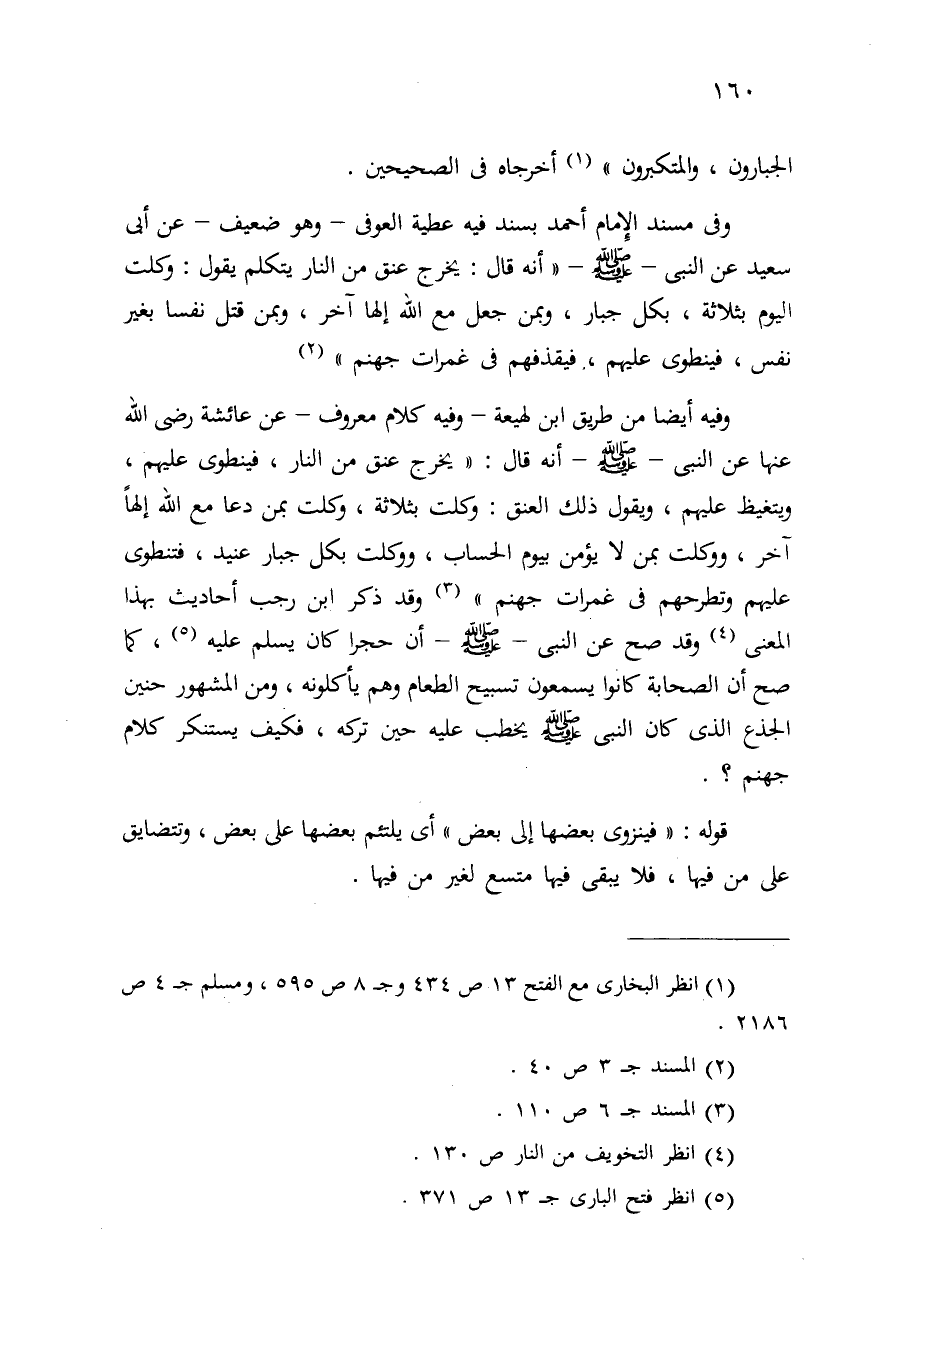 ١٦٠
الجبارون ، والمتكبرون » (١) أخرجاه فى الصحيحين .
وفى مسند الإمام أحمد بسند فيه عطية العوفى – وهو ضعيف – عن أبى
سعيد عن النبى – ﷺ – « أنه قال : يخرج عنق من النار يتكلم يقول : وكلت
اليوم بثلاثة ، بكل جبار ، وبمن جعل مع الله إلها آخر ، وبمن قتل نفسا بغير
نفس ، فينطوى عليهم ، فيقذفهم فى غمرات جهنم » (٢)
وفيه أيضا من طريق ابن لهيعة – وفيه كلام معروف – عن عائشة رضى الله
عنها عن النبى – ﷺ – أنه قال : « يخرج عنق من النار ، فينطوى عليهم ،
ويتغيظ عليهم ، ويقول ذلك العنق : وكلت بثلاثة ، وكلت بمن دعا مع الله إلهاً
آخر ، ووكلت بمن لا يؤمن بيوم الحساب ، ووكلت بكل جبار عنيد ، فتنطوى
عليهم وتطرحهم فى غمرات جهنم » (٣) وقد ذكر ابن رجب أحاديث بهذا
المعنى (٤) وقد صح عن النبى – ﷺ – أن حجرا كان يسلم عليه (٥) ، كما
صح أن الصحابة كانوا يسمعون تسبيح الطعام وهم يأكلونه ، ومن المشهور حنين
الجذع الذى كان النبى ﷺ يخطب عليه حين تركه ، فكيف يستنكر كلام
جهنم ؟ .
قوله : « فينزوى بعضها إلى بعض » أى يلتئم بعضها على بعض ، وتتضايق
على من فيها ، فلا يبقى فيها متسع لغير من فيها .
(١) انظر البخارى مع الفتح ١٣ ص ٤٣٤ وجـ ٨ ص ٥٩٥ ، ومسلم جـ ٤ ص
٢١٨٦ .
(٢) المسند جـ ٣ ص ٤٠ .
(٣) المسند جـ ٦ ص ١١٠ .
(٤) انظر التخويف من النار ص ١٣٠ .
(٥) انظر فتح البارى جـ ١٣ ص ٣٧١ .